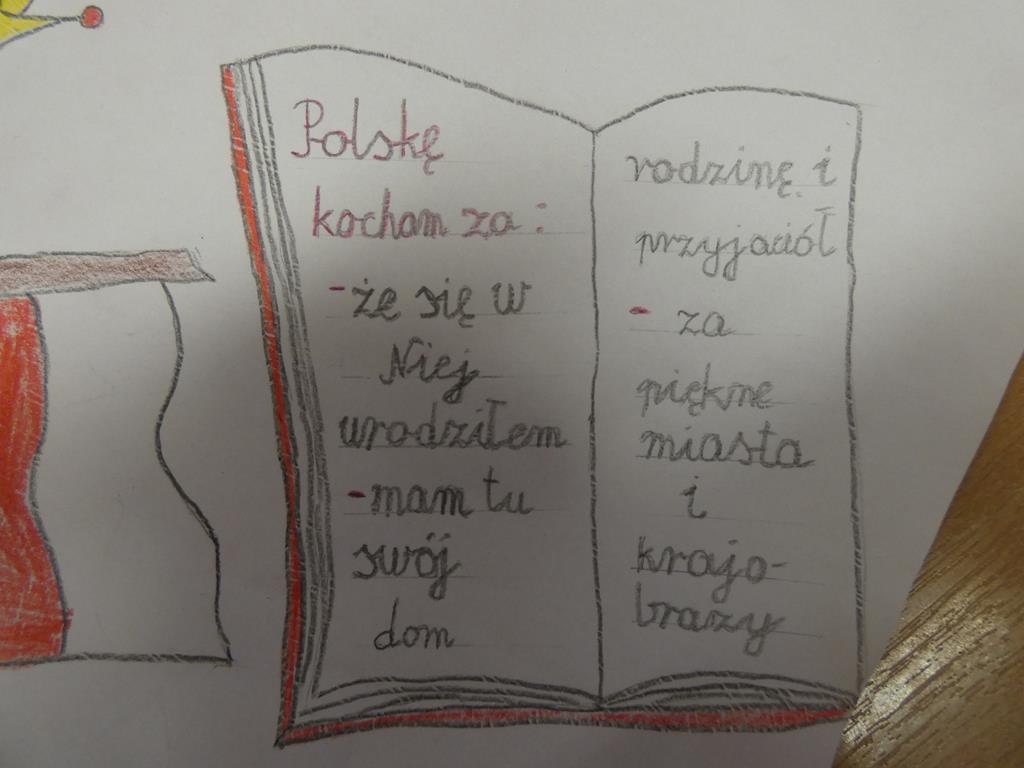 Polskę
kocham za:
-że się w
Niej
urodziłem
-mam tu
swój
dom
rodzinę i
przyjaciół
- za
piękne
miasta
i
krajo-
brazy